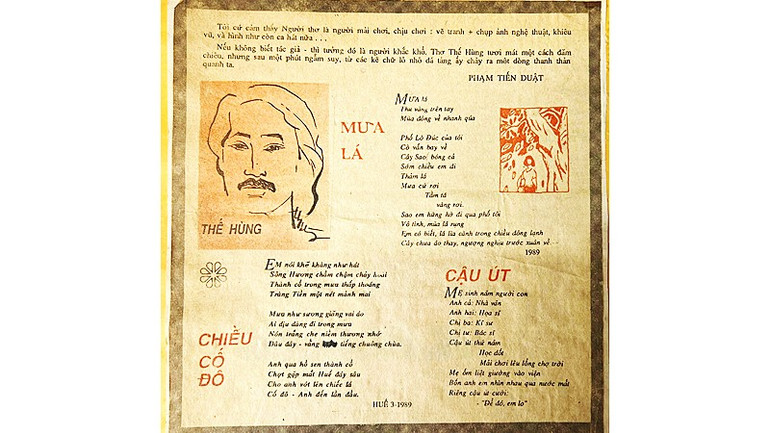 Tôi cứ cảm thấy Người thơ là người mải chơi, chịu chơi : vẽ tranh + chụp ảnh nghệ thuật, khiêu
vũ, và hình như còn ca hát nữa . . .
Nếu không biết tác giả - thì tưởng đó là người khắc khổ. Thơ Thế Hùng tươi mát một cách đăm
chiêu, nhưng sau một phút ngẫm suy, từ các kẽ chữ lô nhô đá tảng ấy chảy ra một dòng thanh thản
quanh ta.
PHẠM TIẾN DUẬT
THẾ HÙNG
MƯA
LÁ
MƯA lá
Thu vàng trên tay
Mùa đông về nhanh qúa
Phố Lò Đúc của tôi
Cò vẫn bay về
Cây Sao bóng cả
Sớm chiều em đi
Thảm lá
Mưa cứ rơi
Tầm tã
vàng rơi.
Sao em hững hờ đi qua phố tôi
Vô tình, mùa lá rụng
Em có biết, lá lìa cành trong chiều đông lạnh
Cây chưa áo thay, ngượng nghịu trước xuân về
1989
CHIỀU
CỐ
ĐÔ
EM nói khẽ khàng như hát
Sông Hương chầm chậm chảy hoài
Thành cổ trong mưa thấp thoáng
Tràng Tiền một nét mảnh mai
Mưa như sương giăng vai áo
Ai dịu dàng đi trong mưa
Nón trắng che niềm thương nhớ
Đâu đây - vẳng tiếng chuông chùa.
Anh qua hồ sen thành cổ
Chợt gặp mắt Huế đáy sâu
Cho anh vớt lên chiếc lá
Cố đô - Anh đến lần đầu.
HUẾ 3-1989
CẬU ÚT
MẸ sinh năm người con
Anh cả: Nhà văn
Anh hai: Họa sĩ
Chị ba: Kĩ sư
Chị tư: Bác sĩ
Cậu út thứ năm
Học dốt
Mải chơi lêu lổng chợ trời
Mẹ ốm liệt giường vào viện
Bốn anh em nhìn nhau qua nước mắt
Riêng cậu út cười:
- "Để đó, em lo"